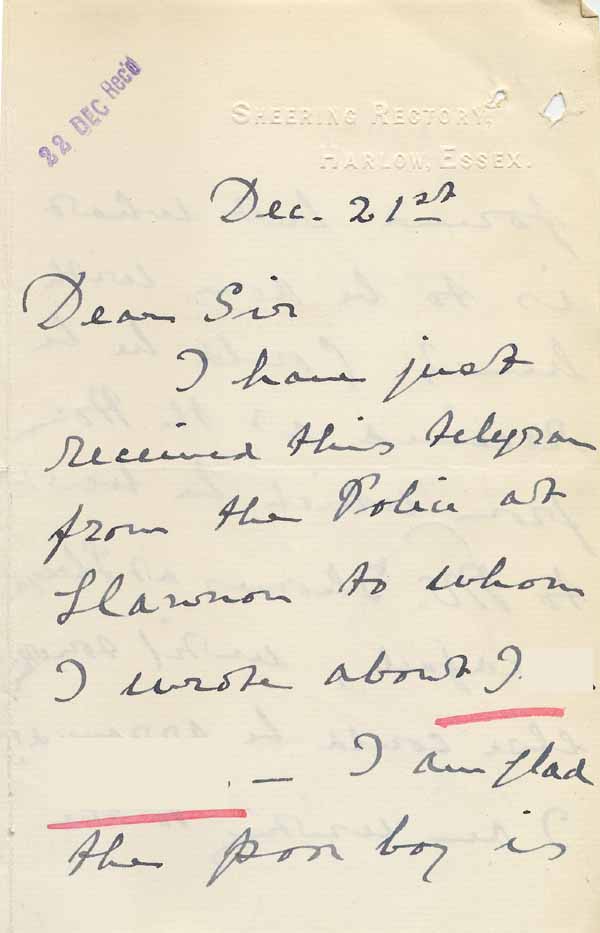 22 DEC Rec'd
SHEERING RECTORY,
HARLOW, ESSEX.
Dec. 21st
Dear Sir
I have just
received this telegram
from the Police at
Llannon to whom
I wrote about J.
— I am glad
the poor boy is